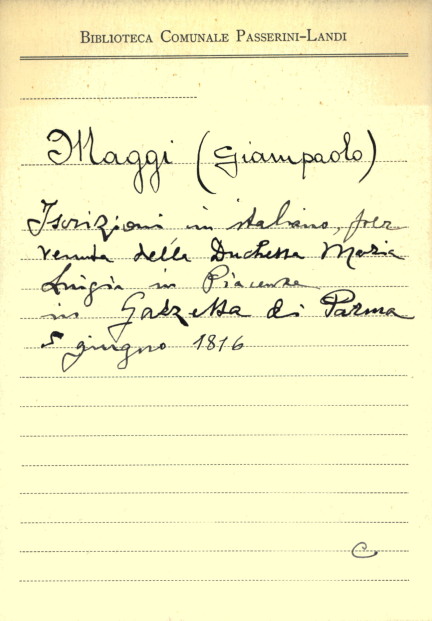 BIBLIOTECA COMUNALE PASSERINI-LANDI
Maggi (Giampaolo)
Iscrizioni in italiano, per
venuta della Duchessa Maria
Luigia in Piacenza
in Gazzetta di Parma
5 giugno 1816
C